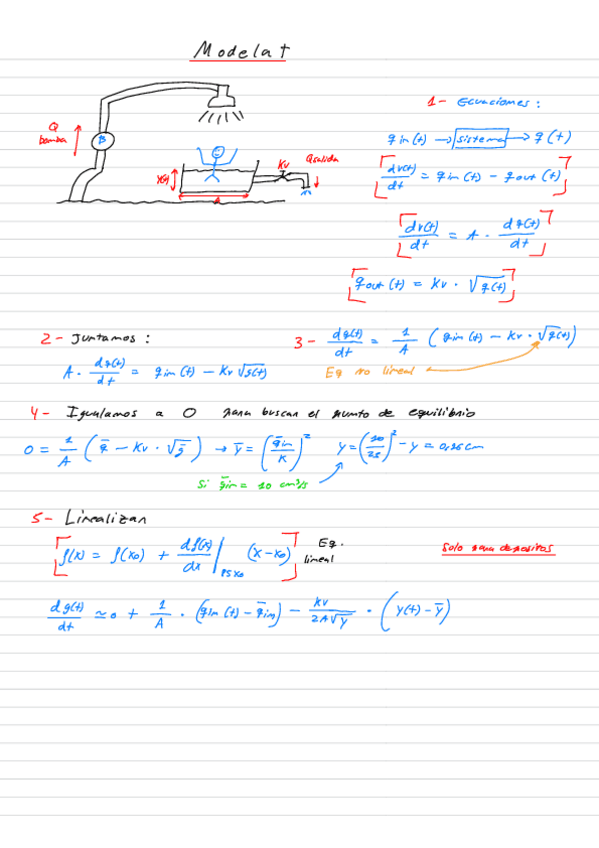 Modelat
Q bomba
B
X(t)
A
Kv
Qsalida
1- Ecuaciones:
qin(t) → sistema → y(t)
dv(t)/dt = qin(t) - qout(t)
dv(t)/dt = A · dy(t)/dt
qout(t) = Kv · √y(t)
2- Juntamos:
A · dy(t)/dt = qin(t) - Kv √y(t)
3- dy(t)/dt = 1/A (qin(t) - Kv · √y(t))
Eq no lineal
4- Igualamos a 0 para buscar el punto de equilibrio
0 = 1/A (q̄ - Kv · √ȳ) → ȳ = (q̄in/K)² y = (10/25)² → y = 0,16 cm
Si q̄in = 10 cm³/s
5- Linealizar
f(x) = f(x0) + df(x)/dx | (x-x0) Eq. lineal
Solo para depositos
dy(t)/dt ≃ 0 + 1/A · (qin(t) - q̄in) - Kv/2A√ȳ · (y(t) - ȳ)